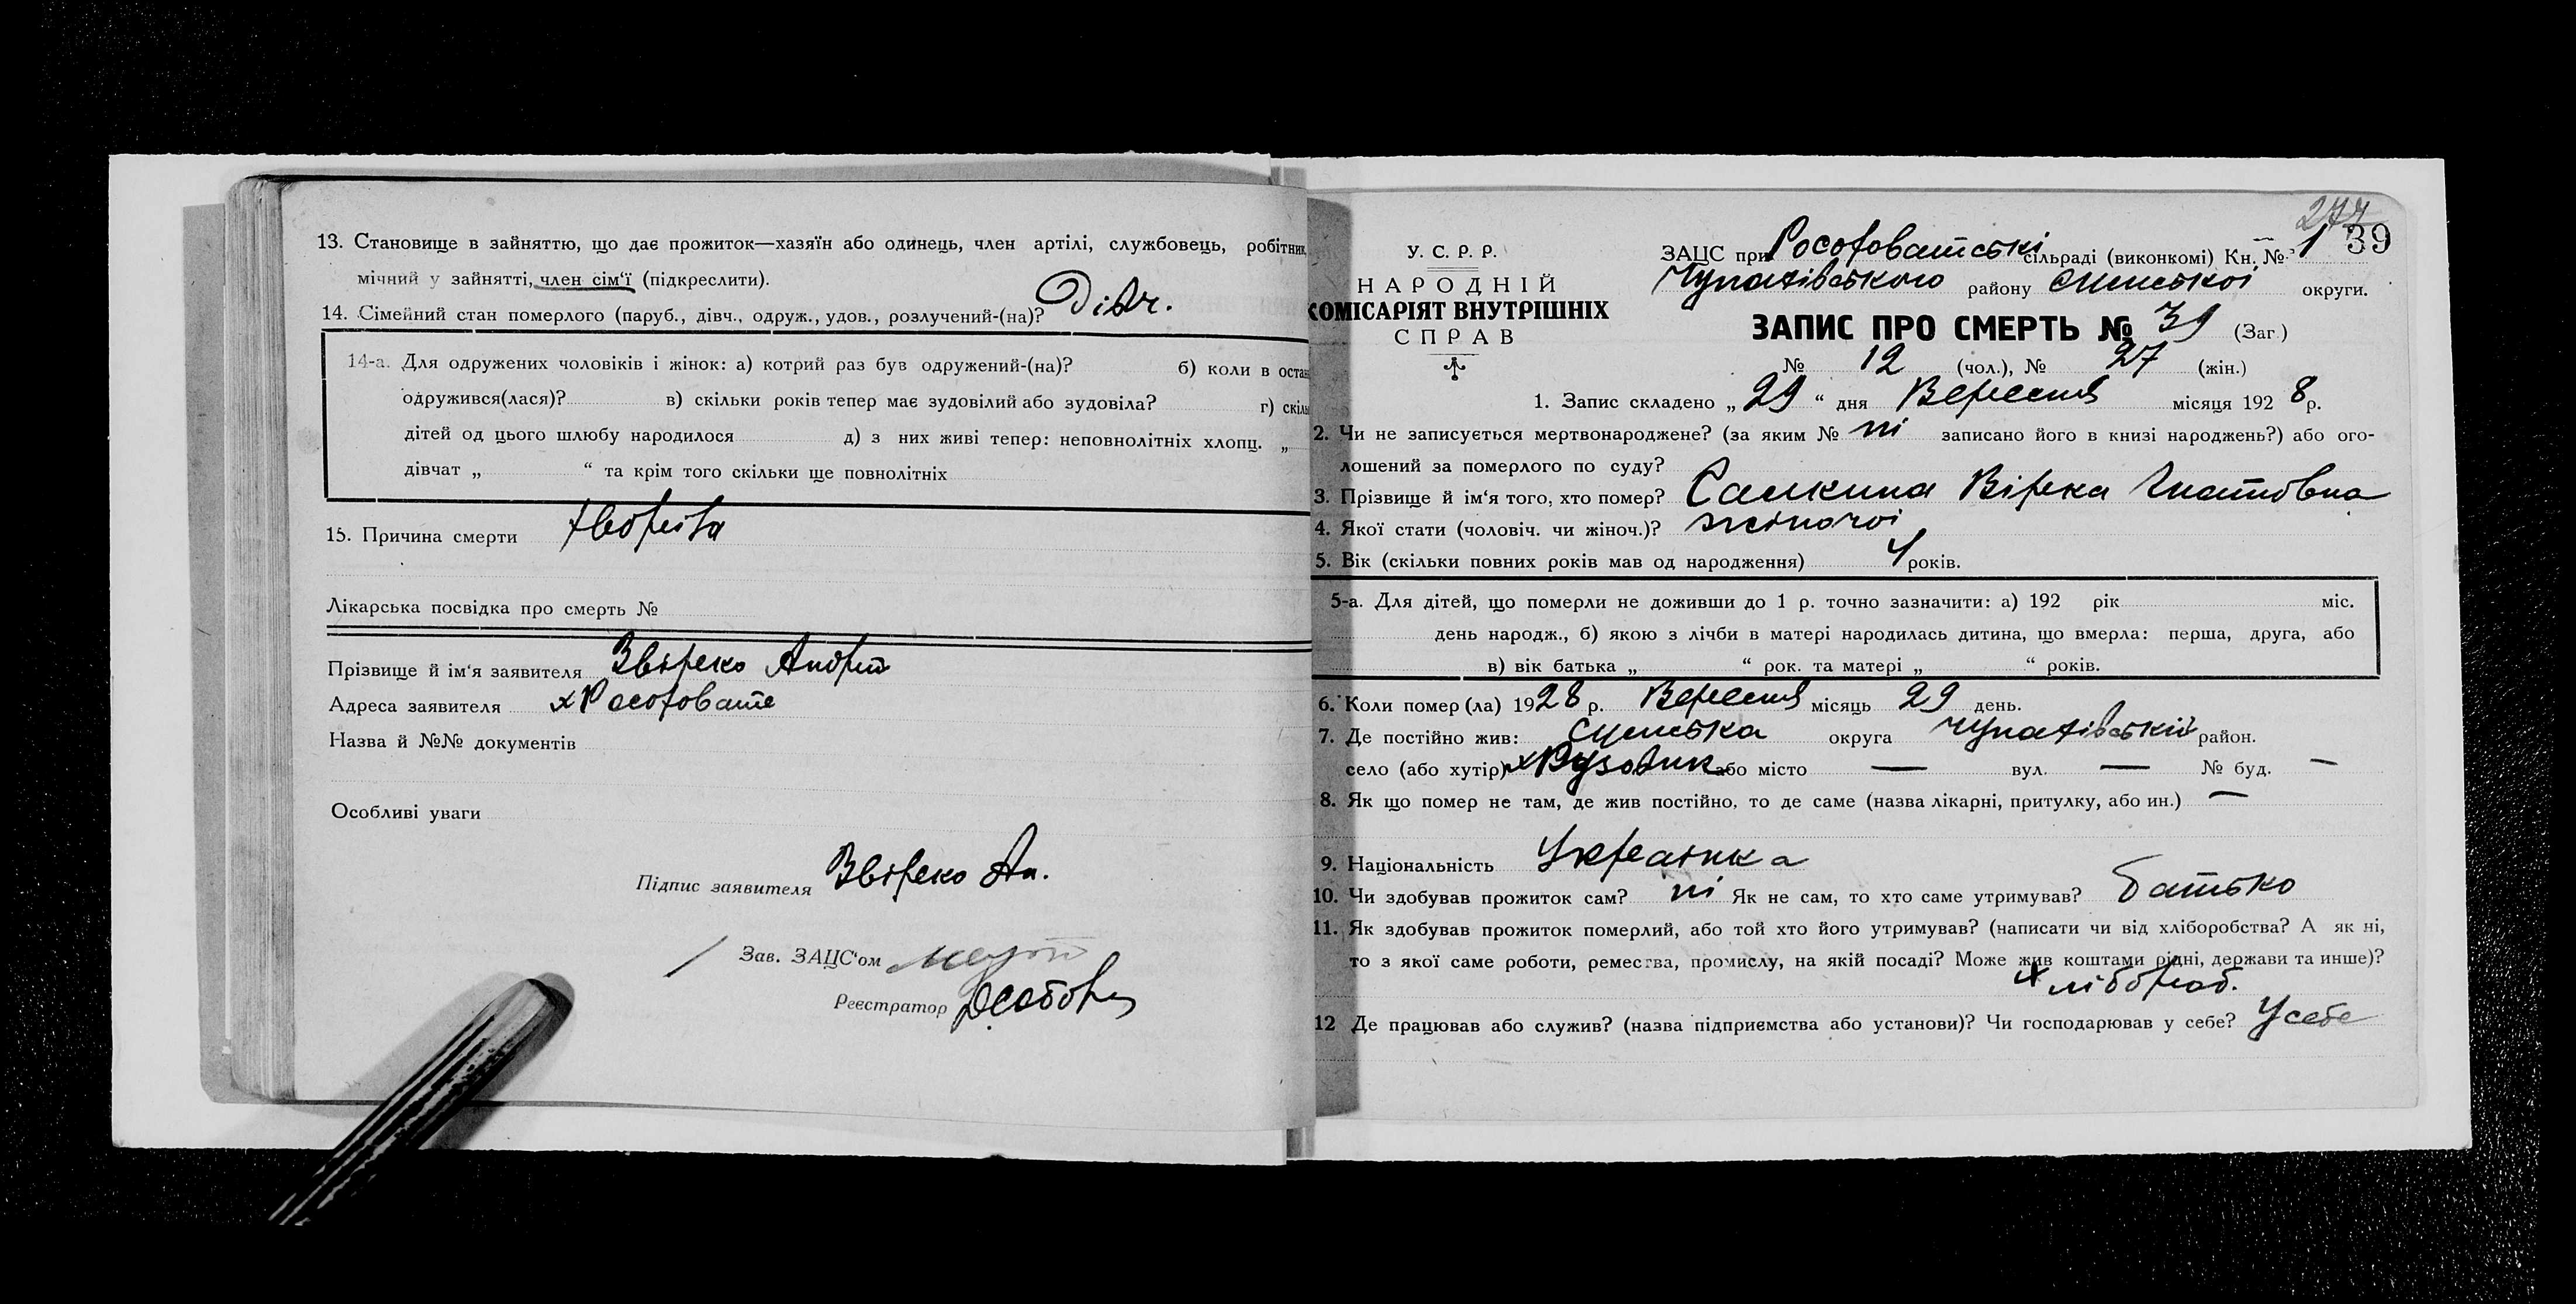 13. Становище в зайняттю, що дає прожиток—хазяїн або одинець, член артілі, службовець, робітник,
мічний у зайнятті, член сім'ї (підкреслити).
14. Сімейний стан померлого (паруб., дівч., одруж., удов., розлучений-(на)? Дівч.
14-а. Для одружених чоловіків і жінок: а) котрий раз був одружений-(на)? б) коли в остан
одружився(лася)? в) скільки років тепер має зудовілий або зудовіла? г) скіль
дітей од цього шлюбу народилося д) з них живі тепер: неповнолітніх хлопц. „
дівчат „ “ та крім того скільки ще повнолітніх
15. Причина смерти хворіла
Лікарська посвідка про смерть №
Прізвище й ім'я заявителя Звіреко Андрій
Адреса заявителя х Росоховате
Назва й №№ документів
Особливі уваги
Підпис заявителя Звіреко Ан.
Зав. ЗАЦС'ом
Реєстратор
277
39
У. С. Р. Р.
НАРОДНІЙ
КОМІСАРІЯТ ВНУТРІШНІХ
СПРАВ
ЗАЦС при Росоховатські сільраді (виконкомі) Кн. № 1
Чупахівського району Сумської округи.
ЗАПИС ПРО СМЕРТЬ № 39 (Заг.)
№ 12 (чол.), № 27 (жін.)
1. Запис складено „ 29 “ дня Вересня місяця 192 8 р.
2. Чи не записується мертвонароджене? (за яким № ні записано його в книзі народжень?) або ого-
лошений за померлого по суду?
3. Прізвище й ім'я того, хто помер? Салкина Вірка Гнатовна
4. Якої стати (чоловіч. чи жіноч.)? жіночої
5. Вік (скільки повних років мав од народження) 4 років.
5-а. Для дітей, що померли не доживши до 1 р. точно зазначити: а) 192 рік міс.
день народж., б) якою з лічби в матері народилась дитина, що вмерла: перша, друга, або
в) вік батька „ “ рок. та матері „ “ років.
6. Коли помер (ла) 1928 р. Вересня місяць 29 день.
7. Де постійно жив: Сумська округа Чупахівський район.
село (або хутір) х Рузовик або місто — вул. — № буд. —
8. Як що помер не там, де жив постійно, то де саме (назва лікарні, притулку, або ин.) —
9. Національність Українка
10. Чи здобував прожиток сам? ні Як не сам, то хто саме утримував? батько
11. Як здобував прожиток померлий, або той хто його утримував? (написати чи від хліборобства? А як ні,
то з якої саме роботи, ремества, промислу, на якій посаді? Може жив коштами рідні, держави та инше)?
хлібороб.
12 Де працював або служив? (назва підприємства або установи)? Чи господарював у себе? У себе